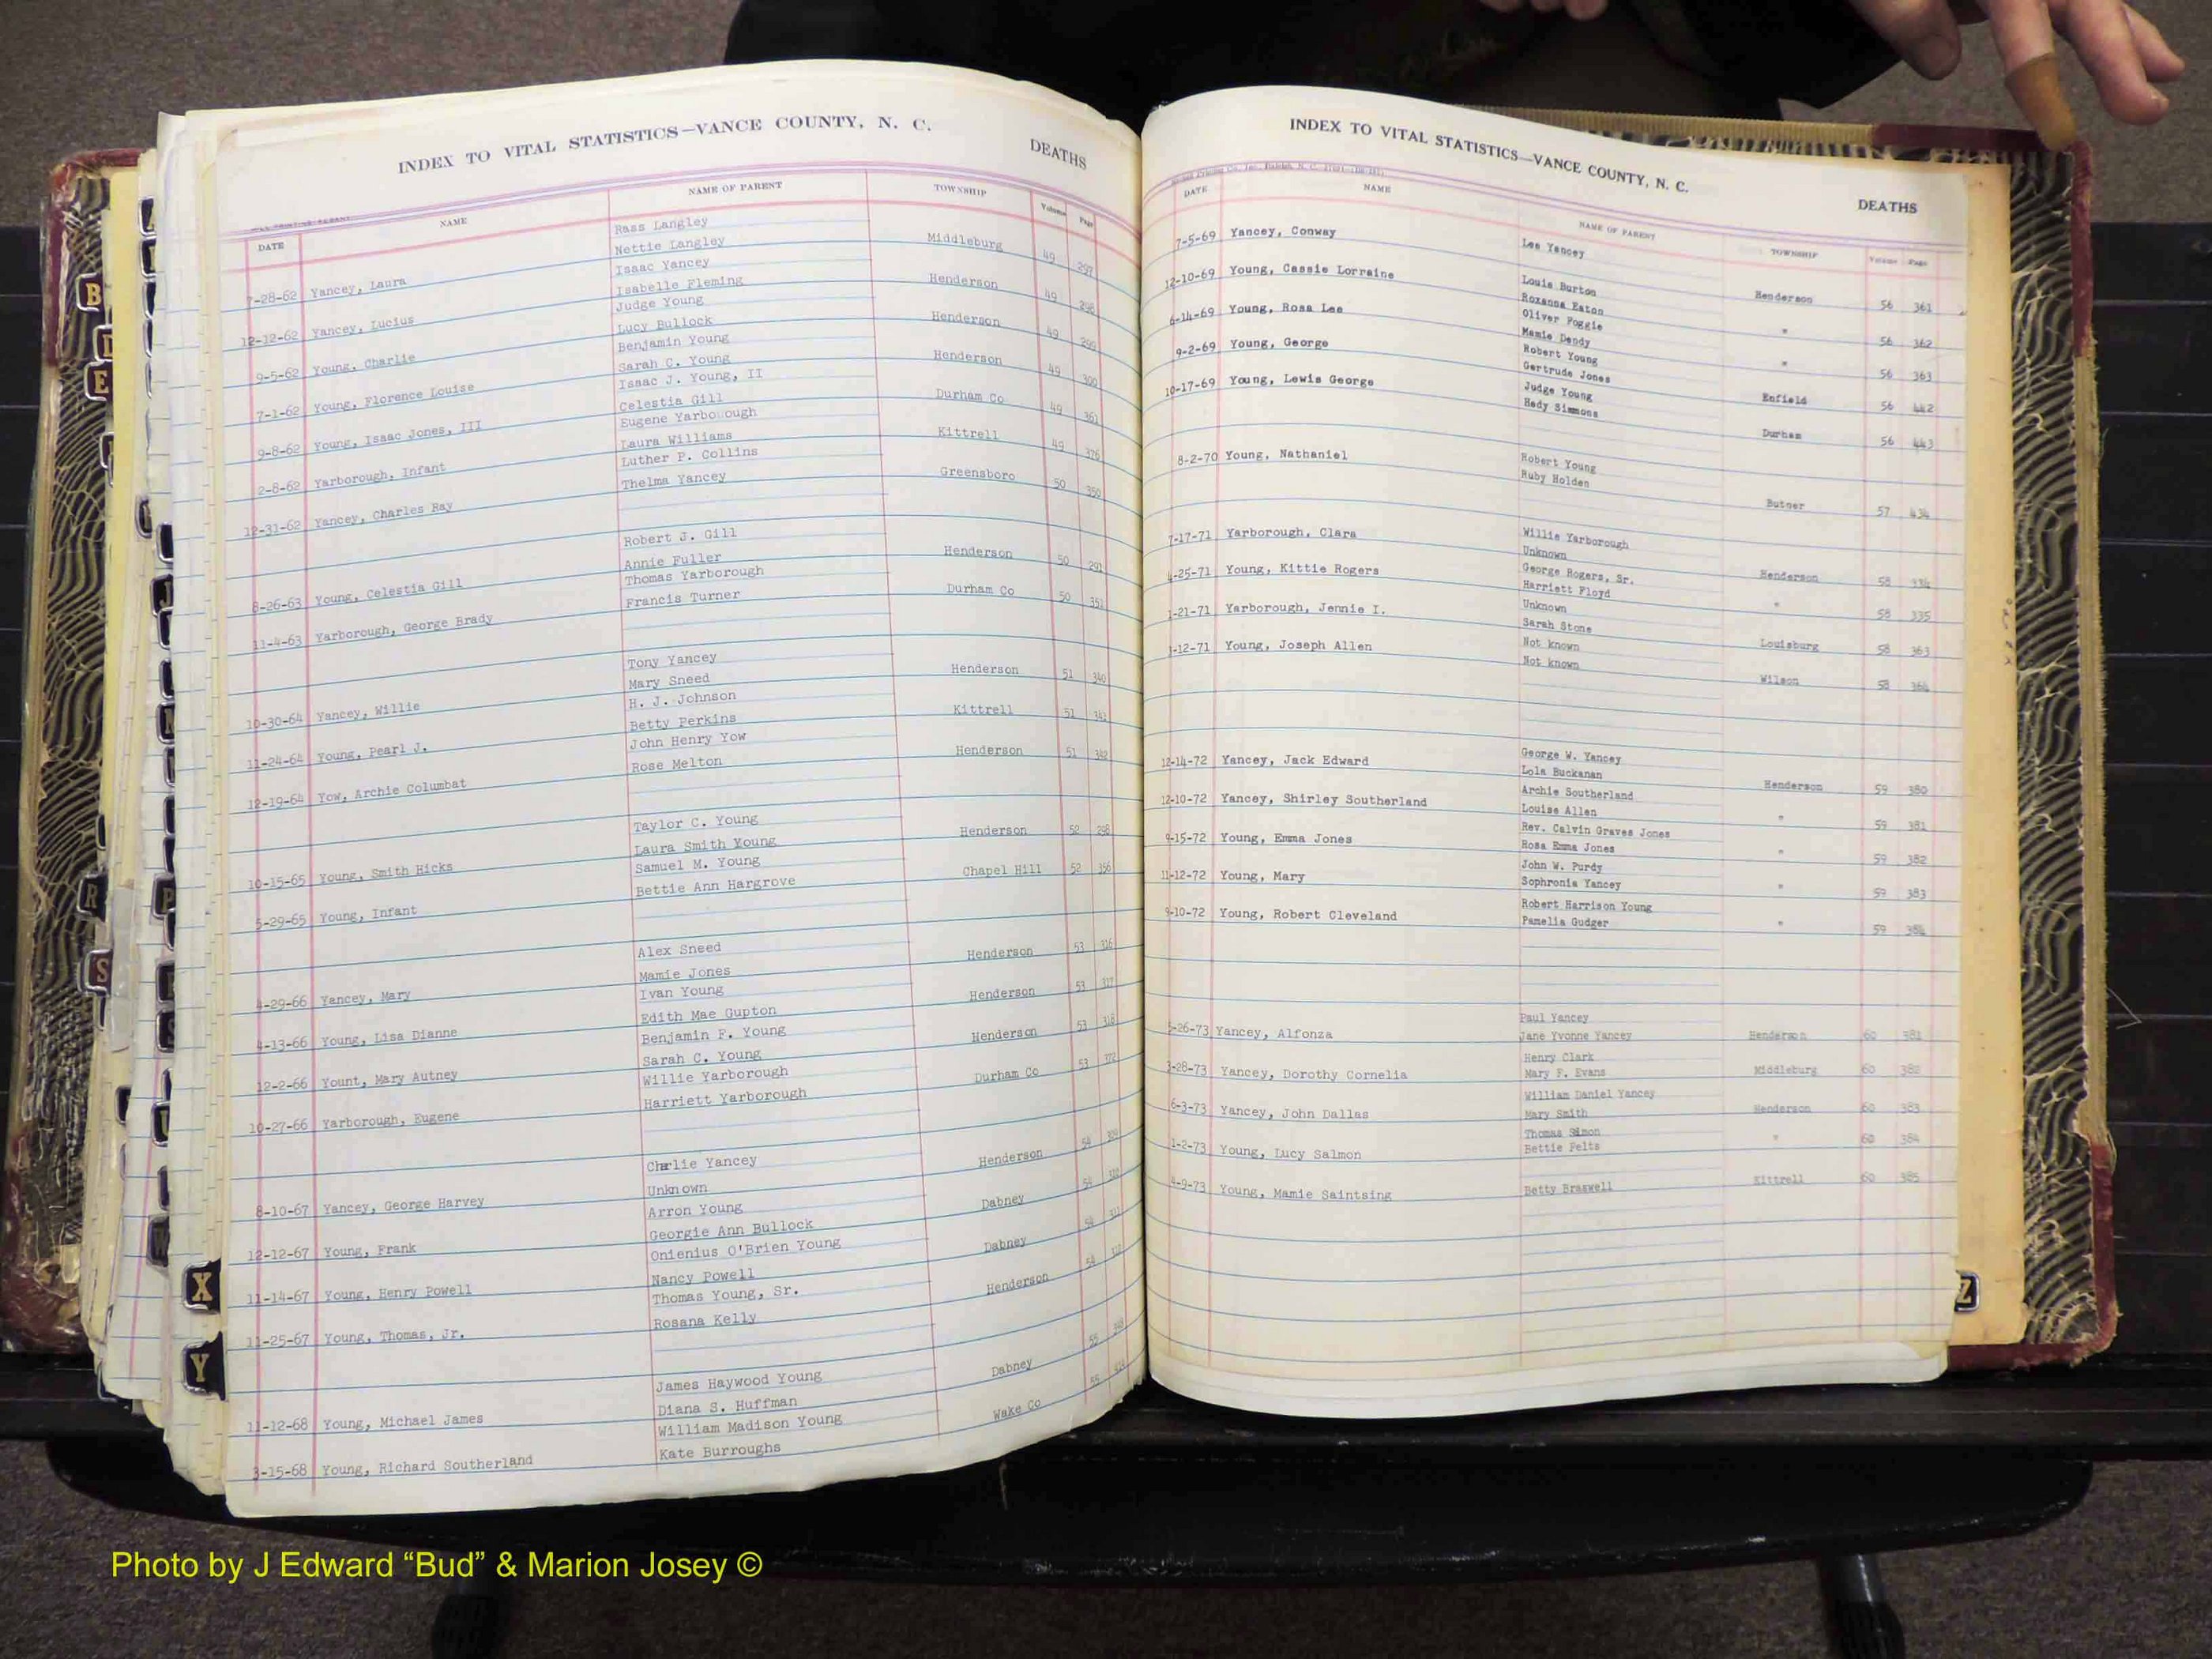 INDEX TO VITAL STATISTICS—VANCE COUNTY, N. C.
DEATHS
DATE NAME NAME OF PARENT TOWNSHIP Volume Page
Rass Langley
7-28-62 Yancey, Laura Nettie Langley Middleburg 49 297
Isaac Yancey
12-12-62 Yancey, Lucius Isabelle Fleming Henderson 49 298
Judge Young
9-5-62 Young, Charlie Lucy Bullock Henderson 49 299
Benjamin Young
7-1-62 Young, Florence Louise Sarah C. Young Henderson 49 300
Isaac J. Young, II
9-8-62 Young, Isaac Jones, III Celestia Gill Durham Co 49 361
Eugene Yarborough
2-8-62 Yarborough, Infant Laura Williams Kittrell 49 376
Luther P. Collins
12-31-62 Yancey, Charles Ray Thelma Yancey Greensboro 50 350
Robert J. Gill
8-26-63 Young, Celestia Gill Annie Fuller Henderson 50 291
Thomas Yarborough
11-4-63 Yarborough, George Brady Francis Turner Durham Co 50 351
Tony Yancey
10-30-64 Yancey, Willie Mary Sneed Henderson 51 340
H. J. Johnson
11-24-64 Young, Pearl J. Betty Perkins Kittrell 51 341
John Henry Yow
12-19-64 Yow, Archie Columbat Rose Melton Henderson 51 342
Taylor C. Young
10-15-65 Young, Smith Hicks Laura Smith Young Henderson 52 298
Samuel M. Young
5-29-65 Young, Infant Bettie Ann Hargrove Chapel Hill 52 356
Alex Sneed
4-29-66 Yancey, Mary Mamie Jones Henderson 53 316
Ivan Young
4-13-66 Young, Lisa Dianne Edith Mae Gupton Henderson 53 317
Benjamin F. Young
12-2-66 Yount, Mary Autney Sarah C. Young Henderson 53 318
Willie Yarborough
10-27-66 Yarborough, Eugene Harriett Yarborough Durham Co 53 372
Charlie Yancey
8-10-67 Yancey, George Harvey Unknown Henderson 54 309
Arron Young
12-12-67 Young, Frank Georgie Ann Bullock Dabney 54 310
Onienius O'Brien Young
11-14-67 Young, Henry Powell Nancy Powell Dabney 54 311
Thomas Young, Sr.
11-25-67 Young, Thomas, Jr. Rosana Kelly Henderson 54 312
James Haywood Young
11-12-68 Young, Michael James Diana S. Huffman Dabney 55
William Madison Young
3-15-68 Young, Richard Southerland Kate Burroughs Wake Co 55
INDEX TO VITAL STATISTICS—VANCE COUNTY, N. C.
DEATHS
DATE NAME NAME OF PARENT TOWNSHIP Volume Page
7-5-69 Yancey, Conway Lee Yancey Henderson 56 361
12-10-69 Young, Cassie Lorraine Louis Burton " 56 362
Roxanna Eaton
6-14-69 Young, Rosa Lee Oliver Foggie " 56 363
Mamie Dendy
9-2-69 Young, George Robert Young Enfield 56 442
Gertrude Jones
10-17-69 Young, Lewis George Judge Young Durham 56 443
Hedy Simmons
8-2-70 Young, Nathaniel Robert Young Butner 57 434
Ruby Holden
7-17-71 Yarborough, Clara Willie Yarborough Henderson 58 334
Unknown
4-25-71 Young, Kittie Rogers George Rogers, Sr. " 58 335
Harriett Floyd
1-21-71 Yarborough, Jennie I. Unknown Louisburg 58 363
Sarah Stone
1-12-71 Young, Joseph Allen Not known Wilson 58 364
Not known
12-14-72 Yancey, Jack Edward George W. Yancey Henderson 59 380
Lola Buckanan
12-10-72 Yancey, Shirley Southerland Archie Southerland " 59 381
Louise Allen
9-15-72 Young, Emma Jones Rev. Calvin Graves Jones " 59 382
Rosa Emma Jones
11-12-72 Young, Mary John W. Purdy " 59 383
Sophronia Yancey
9-10-72 Young, Robert Cleveland Robert Harrison Young " 59 384
Pamelia Gudger
Paul Yancey
5-26-73 Yancey, Alfonza Jane Yvonne Yancey Henderson 60 381
Henry Clark
3-28-73 Yancey, Dorothy Cornelia Mary F. Evans Middleburg 60 382
William Daniel Yancey
6-3-73 Yancey, John Dallas Mary Smith Henderson 60 383
Thomas Simon
1-2-73 Young, Lucy Salmon Bettie Felts " 60 384
4-9-73 Young, Mamie Saintsing Betty Braswell Kittrell 60 385
B
D
E
R
P
S
X
Y
Z
Photo by J Edward “Bud” & Marion Josey ©